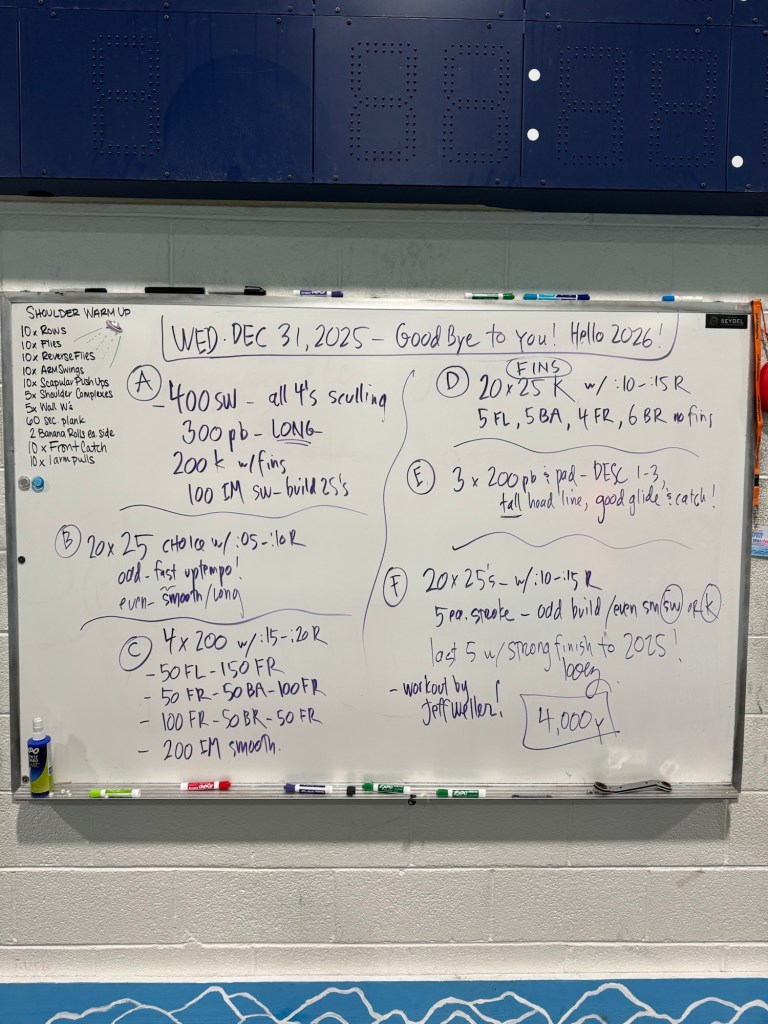 SHOULDER WARM UP
10x Rows
10x Flies
10x Reverse Flies
10x ARM Swings
10x Scapular Push Ups
5x Shoulder Complexes
5x Wall W's
60 sec. plank
2 Banana Rolls ea. side
10x Front Catch
10x 1 arm pulls
WED. DEC 31, 2025 – Good Bye to you! Hello 2026!
SEYDEL
A
- 400 SW - all 4's sculling
300 pb - LONG
200 k w/fins
100 IM SW - build 25's
B
20 x 25 choice w/ :05 - :10 R
odd - fast uptempo!
even - smooth/long
C
4 x 200 w/ :15 - :20 R
- 50 FL - 150 FR
- 50 FR - 50 BA - 100 FR
- 100 FR - 50 BR - 50 FR
- 200 IM smooth.
D
FINS
20 x 25 K w/ :10 - :15 R
5 FL, 5 BA, 4 FR, 6 BR no fins
E.
3 x 200 pb & pad - DESC 1-3,
tall head line, good glide & catch!
F
20 x 25's - w/ :10 - :15 R
5 ea. stroke - odd build / even sm SW or K
last 5 w/ strong finish to 2025!
- workout by
Jeff Weller!
4,000 y
EXPO